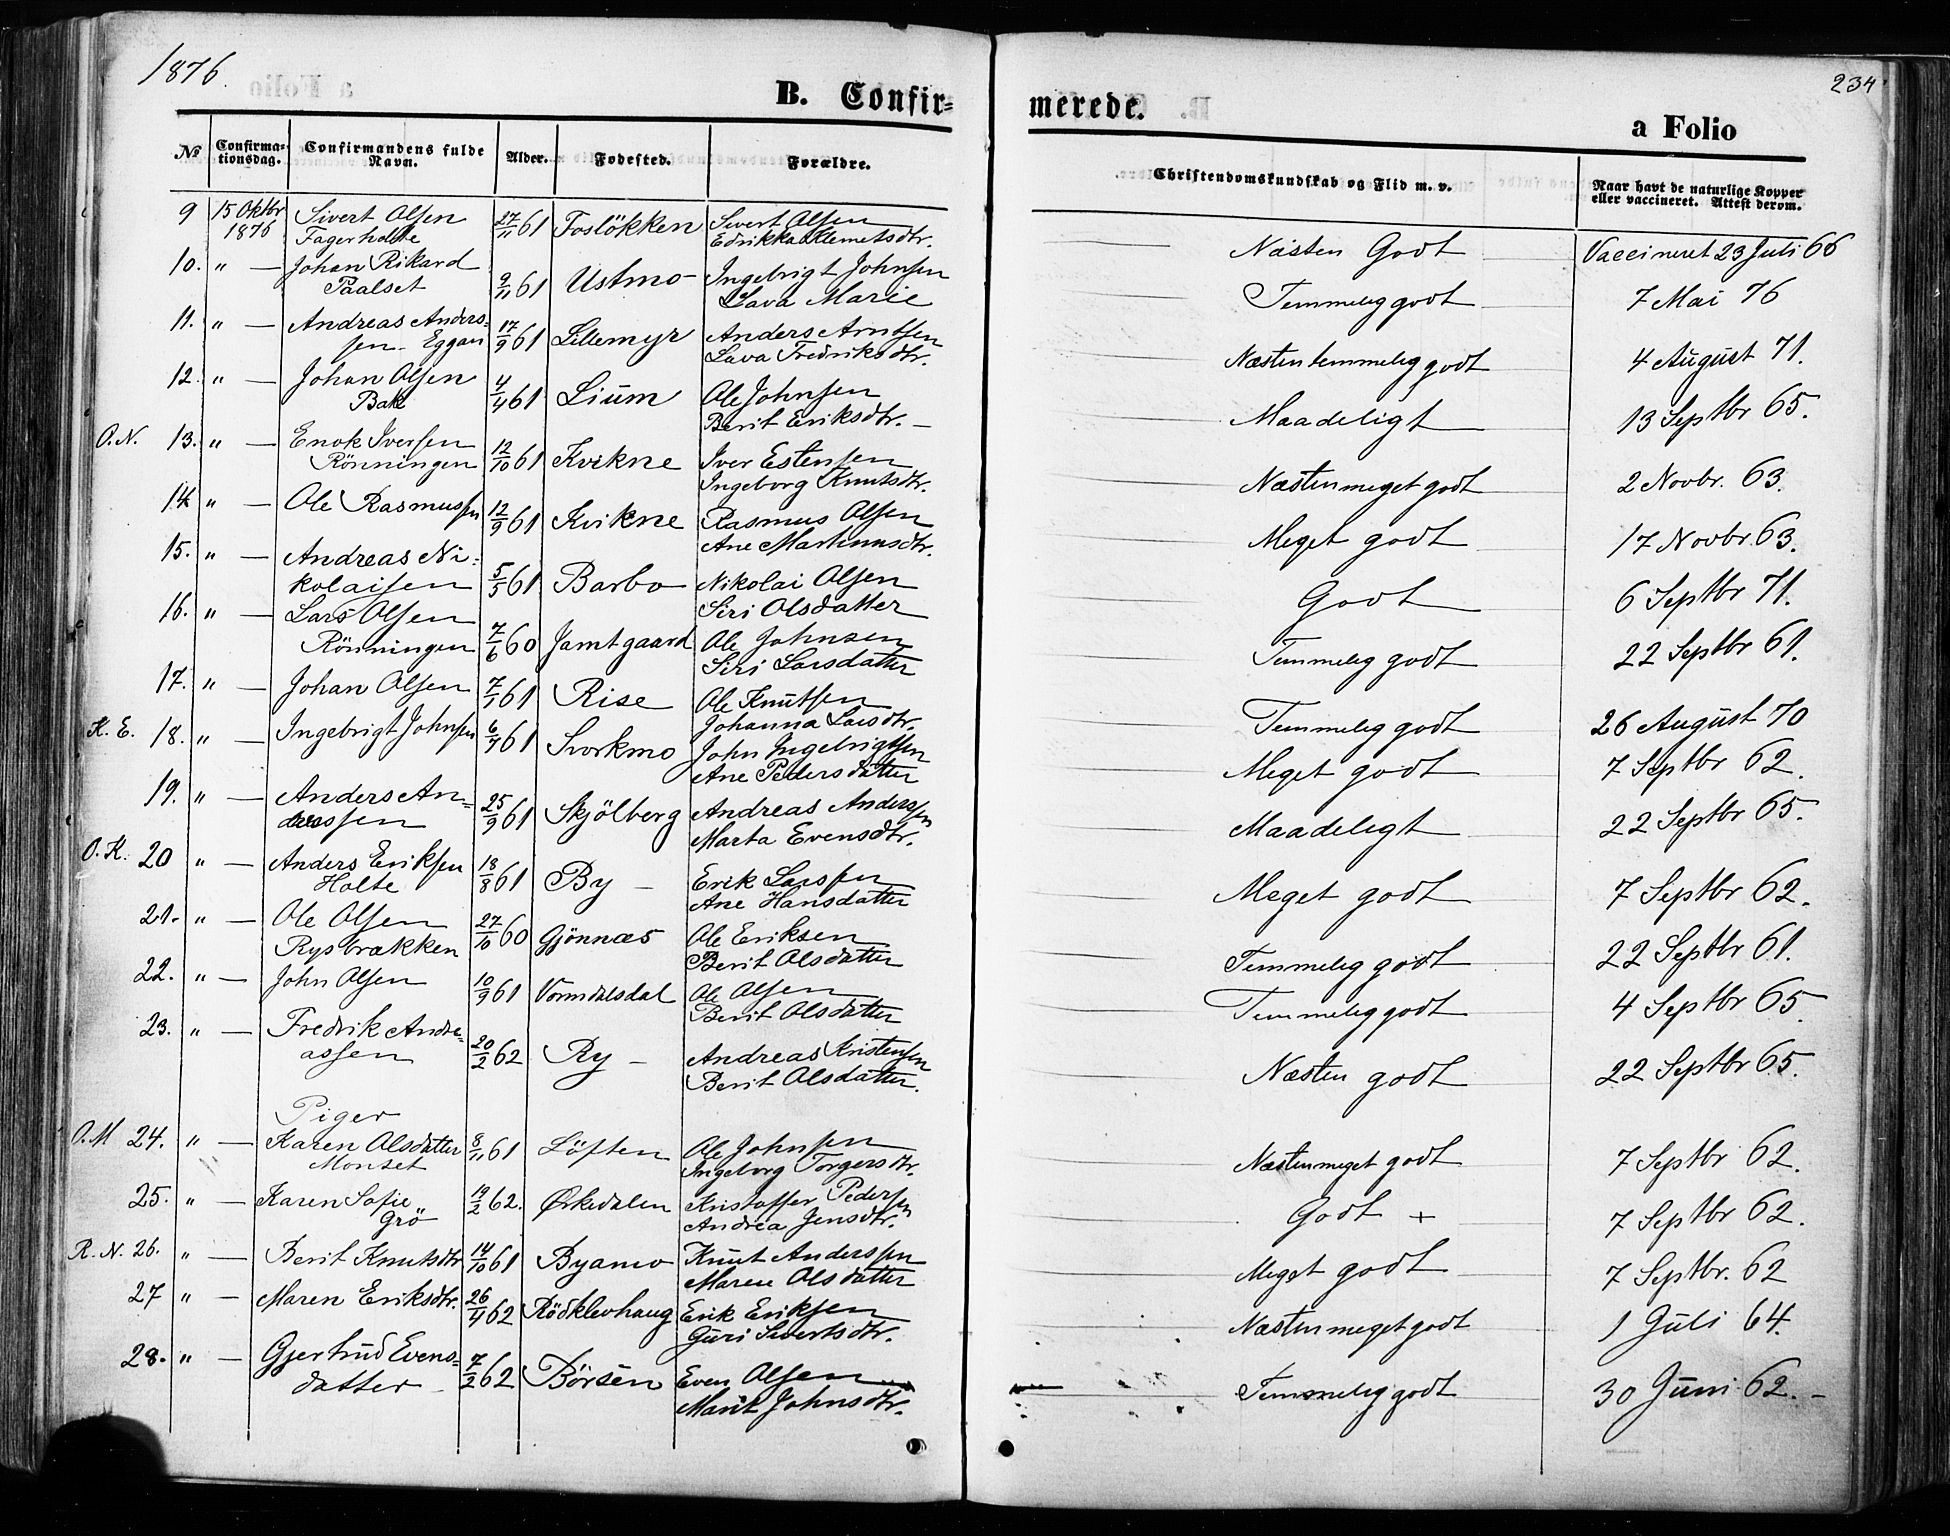 1876.
234
B. Confir=
merede.
a Folio
№
Confirma-
tionsdag.
Confirmandens fulde
Navn.
Alder.
Fødested.
Forældre.
Christendomskundskab og Flid m. v.
Naar havt de naturlige Kopper
eller vaccineret. Attest derom.
9 15 Oktbr Sivert Olsen 27/11 61 Foslökken Sivert Olsen Næsten Godt Vaccineret 23 Juli 66
1876 Fagerholte Edrikka Klemetsdtr.
10. " — Johan Rikard 9/11 61 Ustmo Ingebrigt Johnsen Temmelig godt 7 Mai 76
Paalset Lava Marie
11. " — Andreas Anders= 17/9 61 Lillemyr Anders Arntsen Næsten temmelig godt 4 August 71.
sen Eggan Lava Fredriksdtr.
12. " — Johan Olsen 4/4 61 Lium Ole Johnsen Maadeligt 13 Septbr 65.
Bak Berit Eriksdtr. —
O.N. 13. " — Enok Iversen 12/10 61 Kvikne Iver Estensen Næsten meget godt 2 Novbr. 63.
Rönningen Ingeborg Knutsdtr.
14 " — Ole Rasmussen 12/9 61 Kvikne Rasmus Olsen Meget godt 17 Novbr. 63.
Ane Martinusdtr.
15. " — Andreas Ni= 5/5 61 Barbo Nikolai Olsen Godt 6 Septbr 71.
kolaisen Siri Olsdatter
16. " — Lars Olsen 7/6 60 Jamtgaard Ole Johnsen Temmelig godt 22 Septbr 61.
Rönningen Siri Larsdatter
17. " — Johan Olsen 7/1 61 Rise Ole Knutsen Temmelig godt 26 August 70
Johanna Larsdtr.
K. E. 18. " — Ingebrigt Johnsen 6/4 61 Svorkmo John Ingebrigtsen Meget godt 7 Septbr 62.
Ane Pedersdatter
19. " — Anders An= 25/9 61 Skjölberg Andreas Anderssen Maadeligt 22 Septbr 65.
derssen Marta Evensdtr.
O.K. 20 " — Anders Eriksen 18/8 61 By — Erik Larssen Meget godt 7 Septbr 62.
Holte Ane Hansdatter
21. " — Ole Olsen 27/10 60 Gjönnæs Ole Eriksen Temmelig godt 22 Septbr 61.
Rysbrækken Berit Olsdatter
22. " — John Olsen 10/9 61 Vormdalsdal Ole Olsen Temmelig godt 4 Septbr 65.
Berit Olsdatter
23. " — Fredrik Andre= 20/2 62 Ry — Andreas Kristensen Næsten godt 22 Septbr 65.
assen Berit Olsdatter.
Piger
O.M 24. " — Karen Olsdatter 8/11 61 Löften Ole Johnsen Næsten meget godt 7 Septbr 62.
Monset Ingeborg Torgersdtr.
25. " — Karen Sofie 19/2 62. Ørkedalen Kristoffer Pedersen Godt + 7 Septbr 62.
Grö Andrea Jensdtr.
R. N. 26. " — Berit Knutsdtr 14/10 61 Byamo Knut Anderssen Meget godt 7 Septbr. 62
Maren Olsdatter
27 " — Maren Eriksdtr. 26/4 62 Rödklevhaug Erik Eriksen Næsten meget godt 1 Juli 64.
Guri Sivertsdtr.
28. " — Gjertrud Evens= 7/2 62 Börsen Even Olsen Temmelig godt 30 Juni 62. —
datter Marit Johnsdtr.